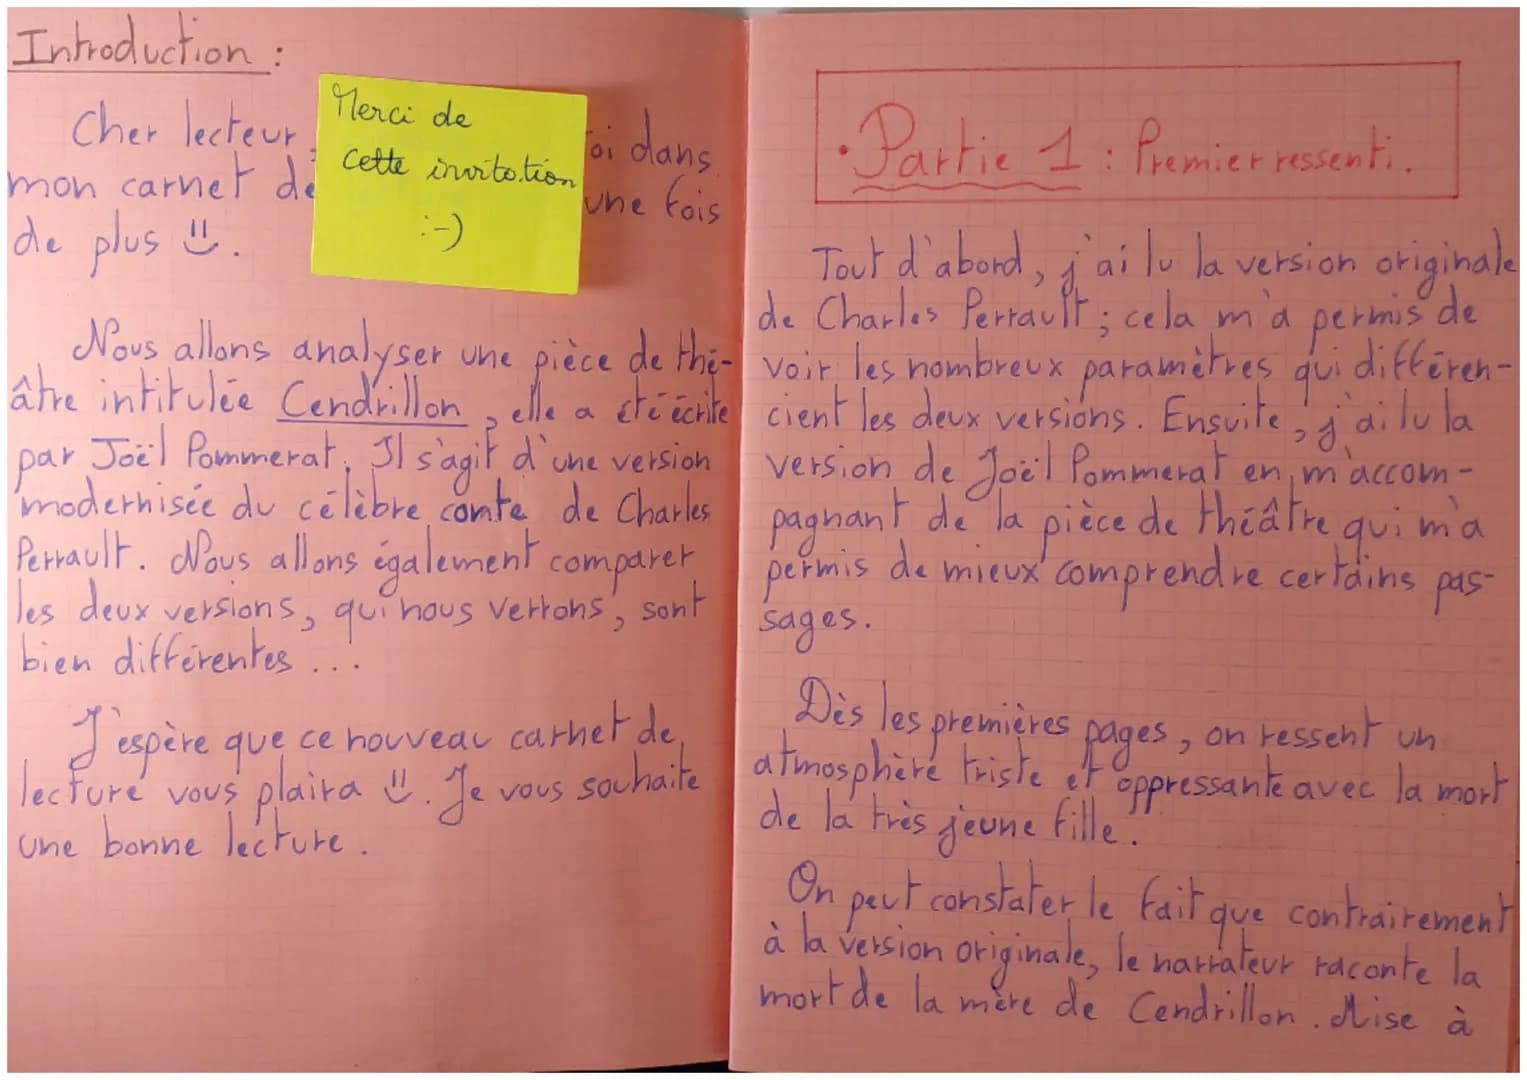 Introduction :
Cher lecteur,
oi dans
mon carnet de
une fois
de plus
Merci de
cette invitation
:-)
Nous allons analyser une pièce de thé-
âtre intitulée Cendrillon, elle a été écrite
par Joël Pommerat. Il s'agit d'une version
modernisée du célèbre conte de Charles
Perrault. Nous allons également comparer
les deux versions, qui nous verrons, sont
bien différentes ...
J'espère que ce nouveau carnet de
lecture vous plaira. Je vous souhaite
une bonne lecture.
• Partie 1 : Premier ressenti.
Tout d'abord, j'ai lu la version originale
de Charles Perrault ; cela m'a permis de
voir les nombreux paramètres qui différen-
cient les deux versions. Ensuite, j'ai lu la
version de Joël Pommerat en m'accom-
pagnant de la pièce de théâtre qui m'a
permis de mieux comprendre certains pas-
sages.
Dès les premières pages, on ressent un
atmosphère triste et oppressante avec la mort
de la très jeune fille.
On peut constater le fait que contrairement
à la version originale, le narrateur raconte la
mort de la mère de Cendrillon. Mise à